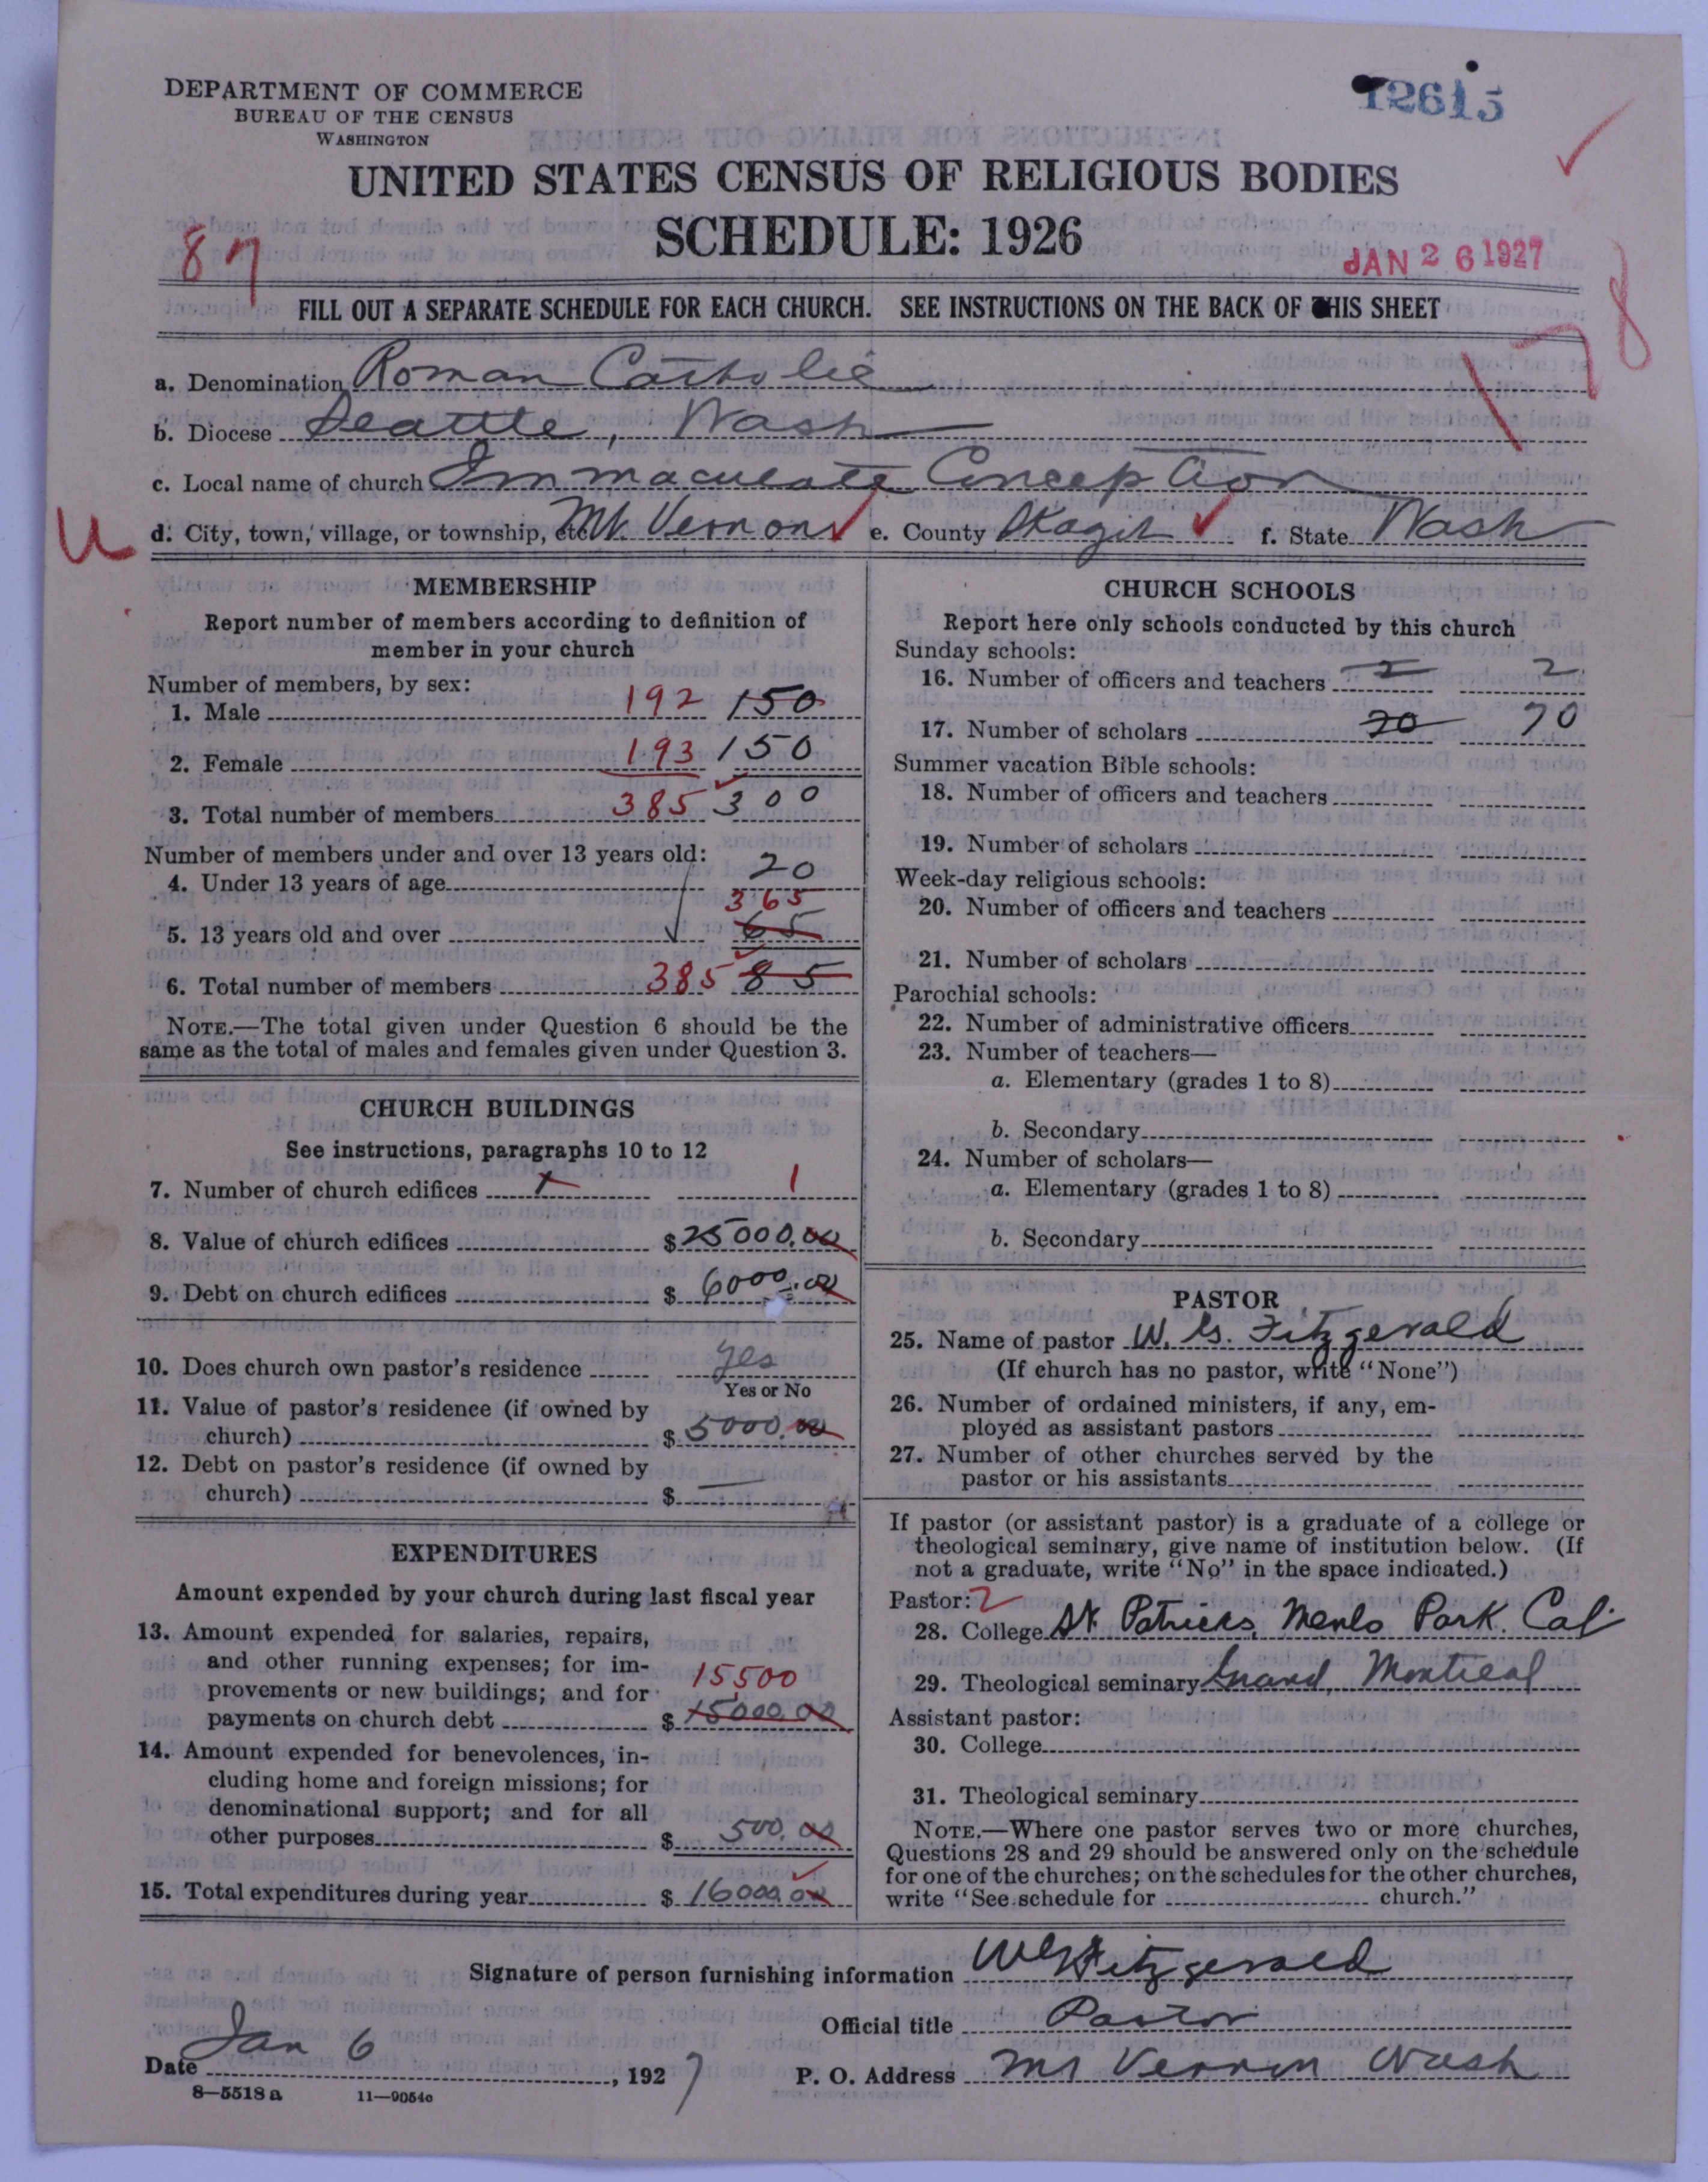 DEPARTMENT OF COMMERCE
BUREAU OF THE CENSUS
WASHINGTON
12615
UNITED STATES CENSUS OF RELIGIOUS BODIES
SCHEDULE: 1926
87
JAN 26 1927
FILL OUT A SEPARATE SCHEDULE FOR EACH CHURCH. SEE INSTRUCTIONS ON THE BACK OF THIS SHEET
178
a. Denomination Roman Catholic
b. Diocese Seattle, Wash
c. Local name of church Immaculate Conception
U
d. City, town, village, or township, etc. Mt. Vernon e. County Skagit f. State Wash
MEMBERSHIP
Report number of members according to definition of
member in your church
Number of members, by sex:
1. Male 192 150
2. Female 193 150
3. Total number of members 385 300
Number of members under and over 13 years old:
4. Under 13 years of age 20
365
5. 13 years old and over 65
6. Total number of members 385 85
NOTE.—The total given under Question 6 should be the
same as the total of males and females given under Question 3.
CHURCH BUILDINGS
See instructions, paragraphs 10 to 12
7. Number of church edifices 1 1
8. Value of church edifices $25000.00
9. Debt on church edifices $6000.00
10. Does church own pastor's residence yes
Yes or No
11. Value of pastor's residence (if owned by
church) $5000.00
12. Debt on pastor's residence (if owned by
church) $ —
EXPENDITURES
Amount expended by your church during last fiscal year
13. Amount expended for salaries, repairs,
and other running expenses; for im-
provements or new buildings; and for 15500
payments on church debt $15000.00
14. Amount expended for benevolences, in-
cluding home and foreign missions; for
denominational support; and for all
other purposes $500.00
15. Total expenditures during year $16000.00
CHURCH SCHOOLS
Report here only schools conducted by this church
Sunday schools:
16. Number of officers and teachers 2 2
17. Number of scholars 70 70
Summer vacation Bible schools:
18. Number of officers and teachers
19. Number of scholars
Week-day religious schools:
20. Number of officers and teachers
21. Number of scholars
Parochial schools:
22. Number of administrative officers
23. Number of teachers—
a. Elementary (grades 1 to 8)
b. Secondary
24. Number of scholars—
a. Elementary (grades 1 to 8)
b. Secondary
PASTOR
25. Name of pastor W. G. Fitzgerald
(If church has no pastor, write "None")
26. Number of ordained ministers, if any, em-
ployed as assistant pastors
27. Number of other churches served by the
pastor or his assistants
If pastor (or assistant pastor) is a graduate of a college or
theological seminary, give name of institution below. (If
not a graduate, write "No" in the space indicated.)
Pastor: 2
28. College St Patricks, Menlo Park. Cal.
29. Theological seminary Grand, Montreal
Assistant pastor:
30. College
31. Theological seminary
NOTE.—Where one pastor serves two or more churches,
Questions 28 and 29 should be answered only on the schedule
for one of the churches; on the schedules for the other churches,
write "See schedule for church."
Signature of person furnishing information WG Fitzgerald
Official title Pastor
Date Jan 6, 1927 P. O. Address Mt Vernon Wash
8—5518 a 11—9054c